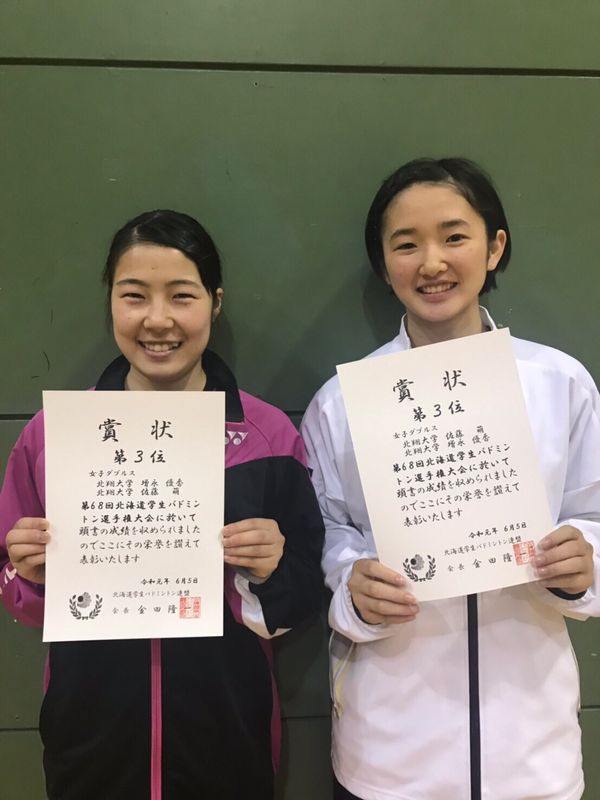 賞 状
第3位
女子ダブルス
北翔大学 増永 優香
北翔大学 佐藤 萌
第68回北海道学生バドミン
トン選手権大会に於いて
頭書の成績を収められました
のでここにその栄誉を讃えて
表彰いたします
令和元年 6月5日
北海道学生バドミントン連盟
会長 金田 隆
賞 状
第3位
女子ダブルス
北翔大学 佐藤 萌
北翔大学 増永 優香
第68回北海道学生バドミン
トン選手権大会に於いて
頭書の成績を収められました
のでここにその栄誉を讃えて
表彰いたします
令和元年 6月5日
北海道学生バドミントン連盟
会長 金田 隆